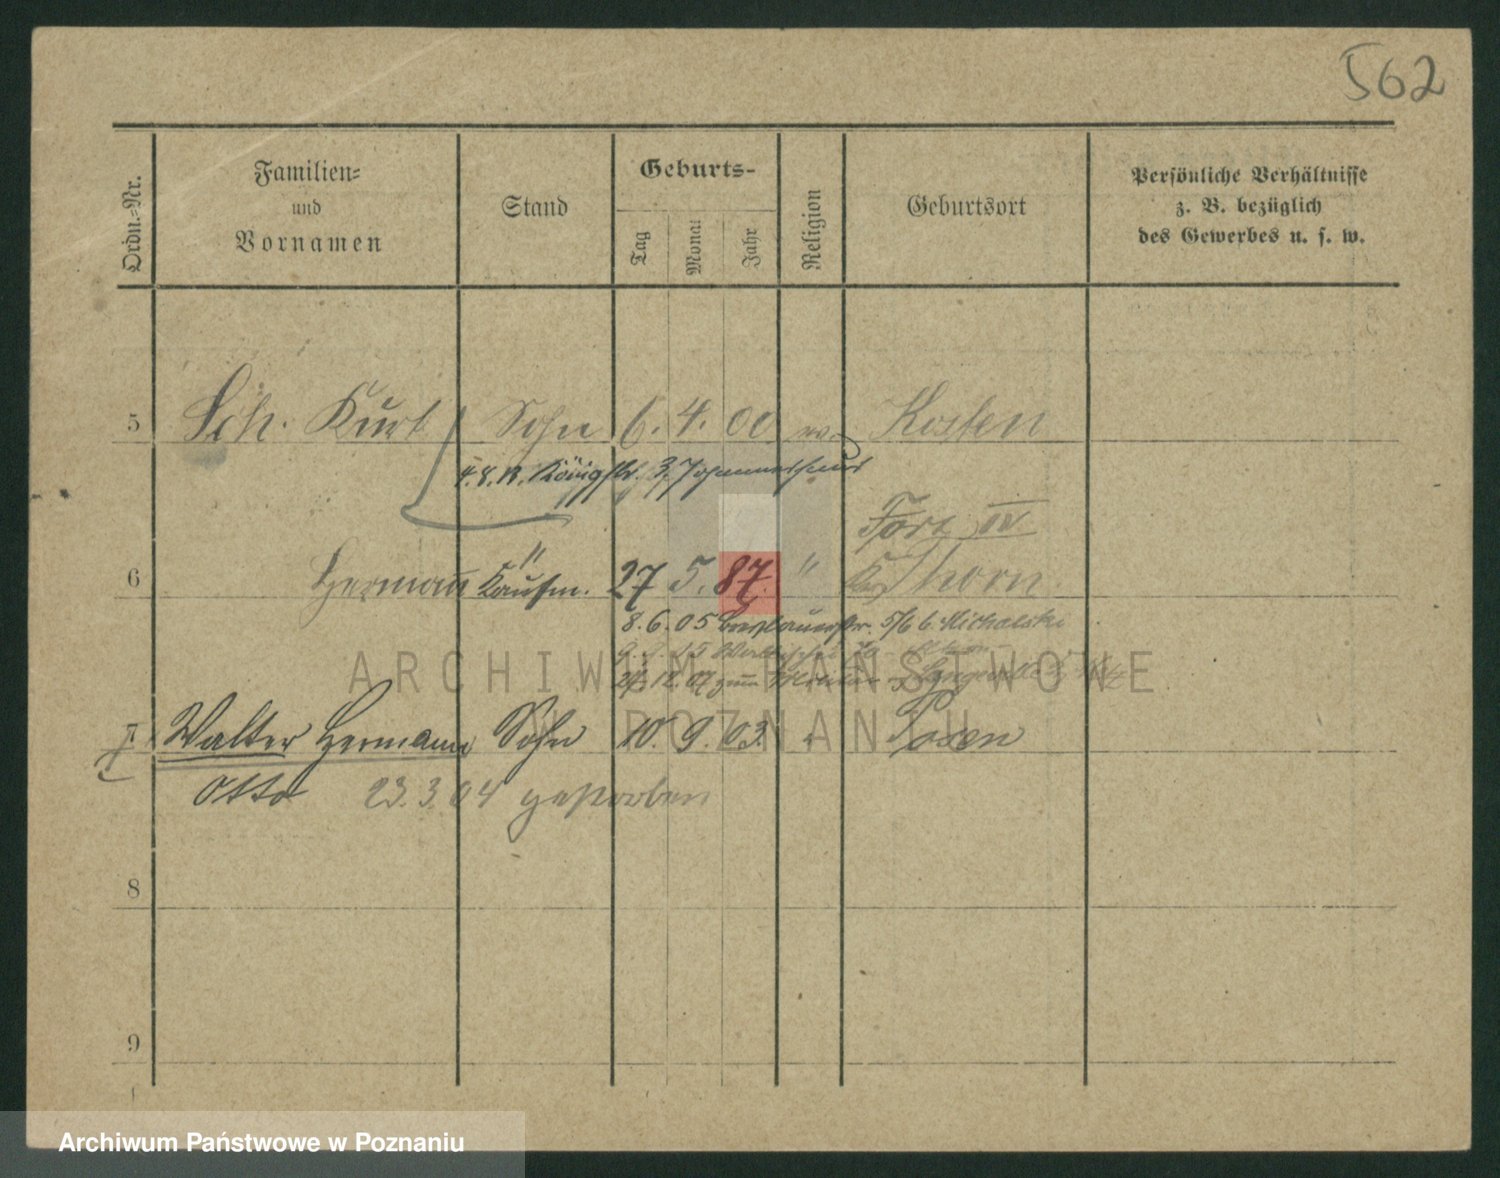 562
Ordn.-Nr.
Familien-
und
Vornamen
Stand
Geburts-
Tag
Monat
Jahr
Religion
Geburtsort
Persönliche Verhältnisse
z. B. bezüglich
des Gewerbes u. s. w.
5 Sch. Kurt Sohn 6. 4. 00 Kosten
4.8. Königstr. 3,
Fort IV
6 Hermann " Kaufm. 27 5. 87. " Thorn
8.6.05 Breslauerstr. 5/6 b. Michalski
12.07 zum
ARCHIWUM PAŃSTWOWE
W POZNANIU
7 Walter Hermann Sohn 10. 9. 03. Posen
Otto 23.3.04 gestorben
8
9
Archiwum Państwowe w Poznaniu